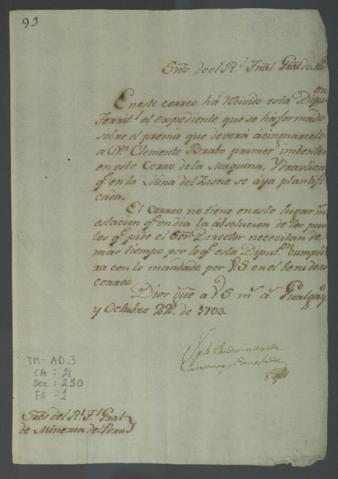 93
Sres. del Rl. Tral. Gral. de
En este correo há recivido esta Dipon.
Territl. el expediente que se ha formado
sobre el premio que deverá asignarsele
a Dn. Clemente primer imbentor
en este Cerro de la Maquina,
qe. en la Mina del se aya planti-
cada.
El correo no tiene en este lugar
estacion qe. un dia la absolucion de los pun-
tos qe. pide el Sor. Director necesitan de
mas tiempo por lo qe. esta Dipun. cumpli-
ra con lo mandado por VS en el benidero
correo.
Dios gue. a VS ms. as.
y Octubre 22 de
TM-AD.3
CA : 21
Doc : 250
FS : 1
Sres. del Rl. Tl. Gral
de Mineria del